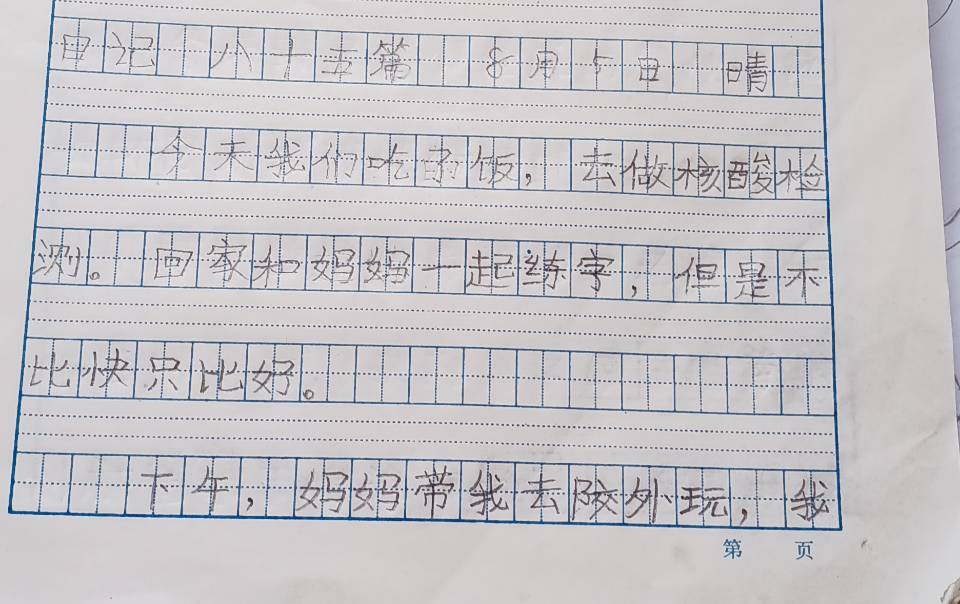 日记 八十五篇 8月5日 晴
今天我们吃了饭，去做核酸检
测。回家和妈妈一起练字，但是不
比快只比好。
下午，妈妈带我去院外玩，我
第 页